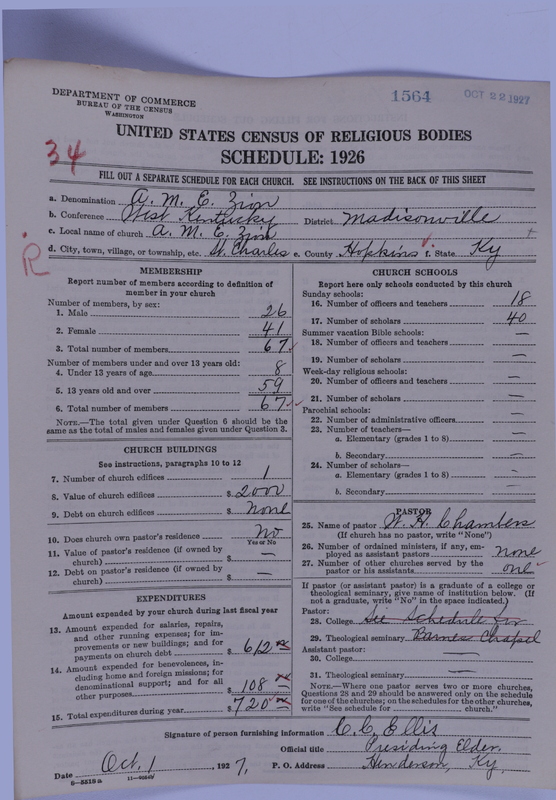 DEPARTMENT OF COMMERCE
BUREAU OF THE CENSUS
WASHINGTON
1564
OCT 22 1927
UNITED STATES CENSUS OF RELIGIOUS BODIES
SCHEDULE: 1926
34
FILL OUT A SEPARATE SCHEDULE FOR EACH CHURCH. SEE INSTRUCTIONS ON THE BACK OF THIS SHEET
a. Denomination A. M. E. Zion
b. Conference West Kentucky District Madisonville
c. Local name of church A. M. E. Zion
d. City, town, village, or township, etc. St. Charles e. County Hopkins f. State Ky
R
MEMBERSHIP
Report number of members according to definition of
member in your church
Number of members, by sex:
1. Male 26
2. Female 41
3. Total number of members 67
Number of members under and over 13 years old:
4. Under 13 years of age 8
5. 13 years old and over 59
6. Total number of members 67
NOTE.—The total given under Question 6 should be
same as the total of males and females given under Question 3.
CHURCH BUILDINGS
See instructions, paragraphs 10 to 12
7. Number of church edifices 1
8. Value of church edifices $ 2000
9. Debt on church edifices $ None
10. Does church own pastor's residence? No
Yes or No
11. Value of pastor's residence (if owned by
church) $ —
12. Debt on pastor's residence (if owned by
church) $ —
EXPENDITURES
Amount expended by your church during last fiscal year
13. Amount expended for salaries, repairs,
and other running expenses; for im-
provements or new buildings; and for
payments on church debt $ 612
14. Amount expended for benevolences, in-
cluding home and foreign missions; for
denominational support; and for all
other purposes $ 108
15. Total expenditures during year $ 720
CHURCH SCHOOLS
Report here only schools conducted by this church
Sunday schools:
16. Number of officers and teachers 18
17. Number of scholars 40
Summer vacation Bible schools:
18. Number of officers and teachers —
19. Number of scholars —
Week-day religious schools:
20. Number of officers and teachers —
21. Number of scholars —
Parochial schools:
22. Number of administrative officers —
23. Number of teachers—
a. Elementary (grades 1 to 8) —
b. Secondary —
24. Number of scholars—
a. Elementary (grades 1 to 8) —
b. Secondary —
PASTOR
25. Name of pastor W. H. Chambers
(If church has no pastor, write "None")
26. Number of ordained ministers, if any, em-
ployed as assistant pastors none
27. Number of other churches served by the
pastor or his assistants one
If pastor (or assistant pastor) is a graduate of a college or
theological seminary, give name of institution below. (If
not a graduate, write "No" in the space indicated.)
Pastor:
28. College See Schedule for
29. Theological seminary Barnes Chapel
Assistant pastor:
30. College —
31. Theological seminary —
NOTE.—Where one pastor serves two or more churches,
Questions 28 and 29 should be answered only on the schedule
for one of the churches; on the schedules for the other churches,
write "See schedule for church."
Signature of person furnishing information C. C. Ellis
Official title Presiding Elder
Date Oct. 1, 1927. P. O. Address Henderson, Ky,